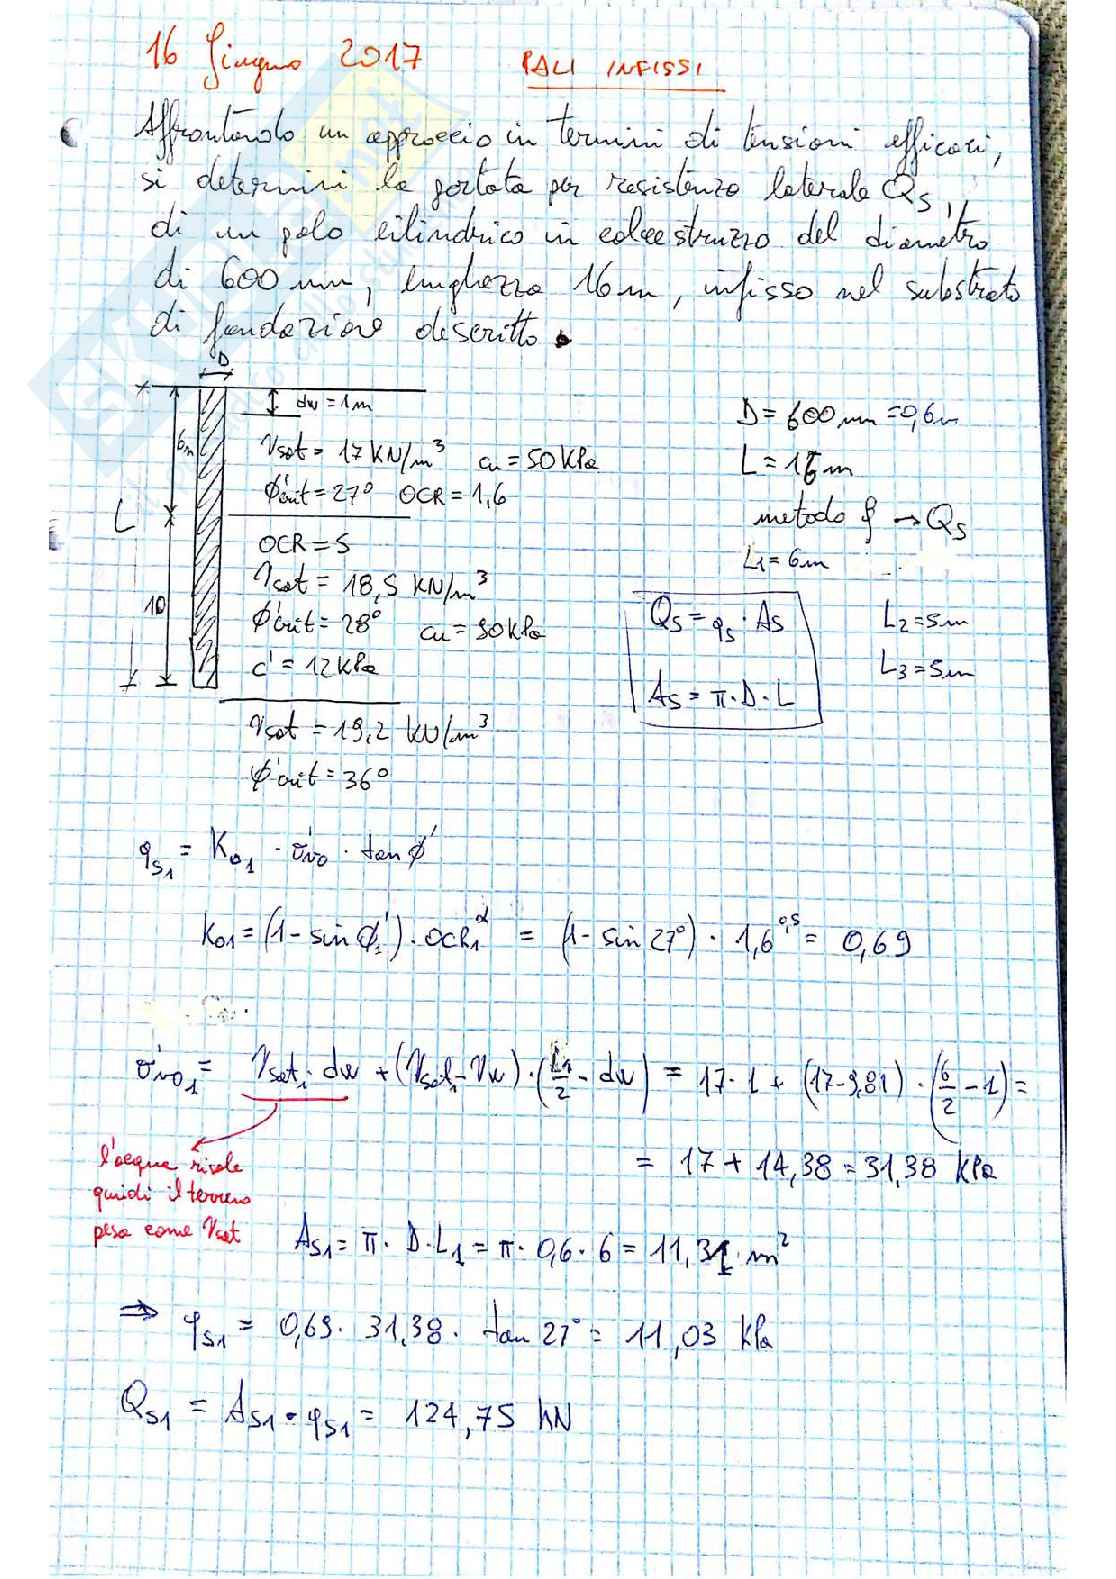 16 Giugno 2017 PALI INFISSI
Affrontando un approccio in termini di tensioni efficaci,
si determini la portata per resistenza laterale Qs,
di un palo cilindrico in calcestruzzo del diametro
di 600 mm, lunghezza 16 m, infisso nel substrato
di fondazione descritto.
D
dw = 1m
6m
γsat = 17 KN/m³ cu = 50 kPa
ϕ'crit = 27° OCR = 1,6
L
OCR = 5
γsat = 18,5 KN/m³
10
ϕ'crit = 28° cu = 80 kPa
c' = 12 kPa
γsat = 19,2 KN/m³
ϕ'crit = 36°
D = 600 mm = 0,6 m
L = 16 m
metodo β → Qs
L1 = 6m
Qs = qs · As
As = π · D · L
L2 = 5m
L3 = 5m
qs1 = Ko1 · σ'vo · tan ϕ'
Ko1 = (1 - sin ϕ'1) · OCR1^α = (1 - sin 27°) · 1,6^0,5 = 0,69
σ'vo1 = γsat1 · dw + (γsat1 - γw) · (L1/2 - dw) = 17 · 1 + (17 - 9,81) · (6/2 - 1) =
= 17 + 14,38 = 31,38 kPa
l'acqua risale
quindi il terreno
pesa come γsat
As1 = π · D · L1 = π · 0,6 · 6 = 11,31 m²
⇒ qs1 = 0,69 · 31,38 · tan 27° = 11,03 kPa
Qs1 = As1 · qs1 = 124,75 kN